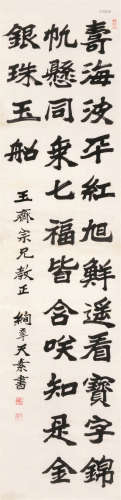 壽海波平紅旭鮮遥看寶字錦
帆懸同乘七福皆含咲知是金
銀珠玉船
玉齋宗兄教正 絢華天素書